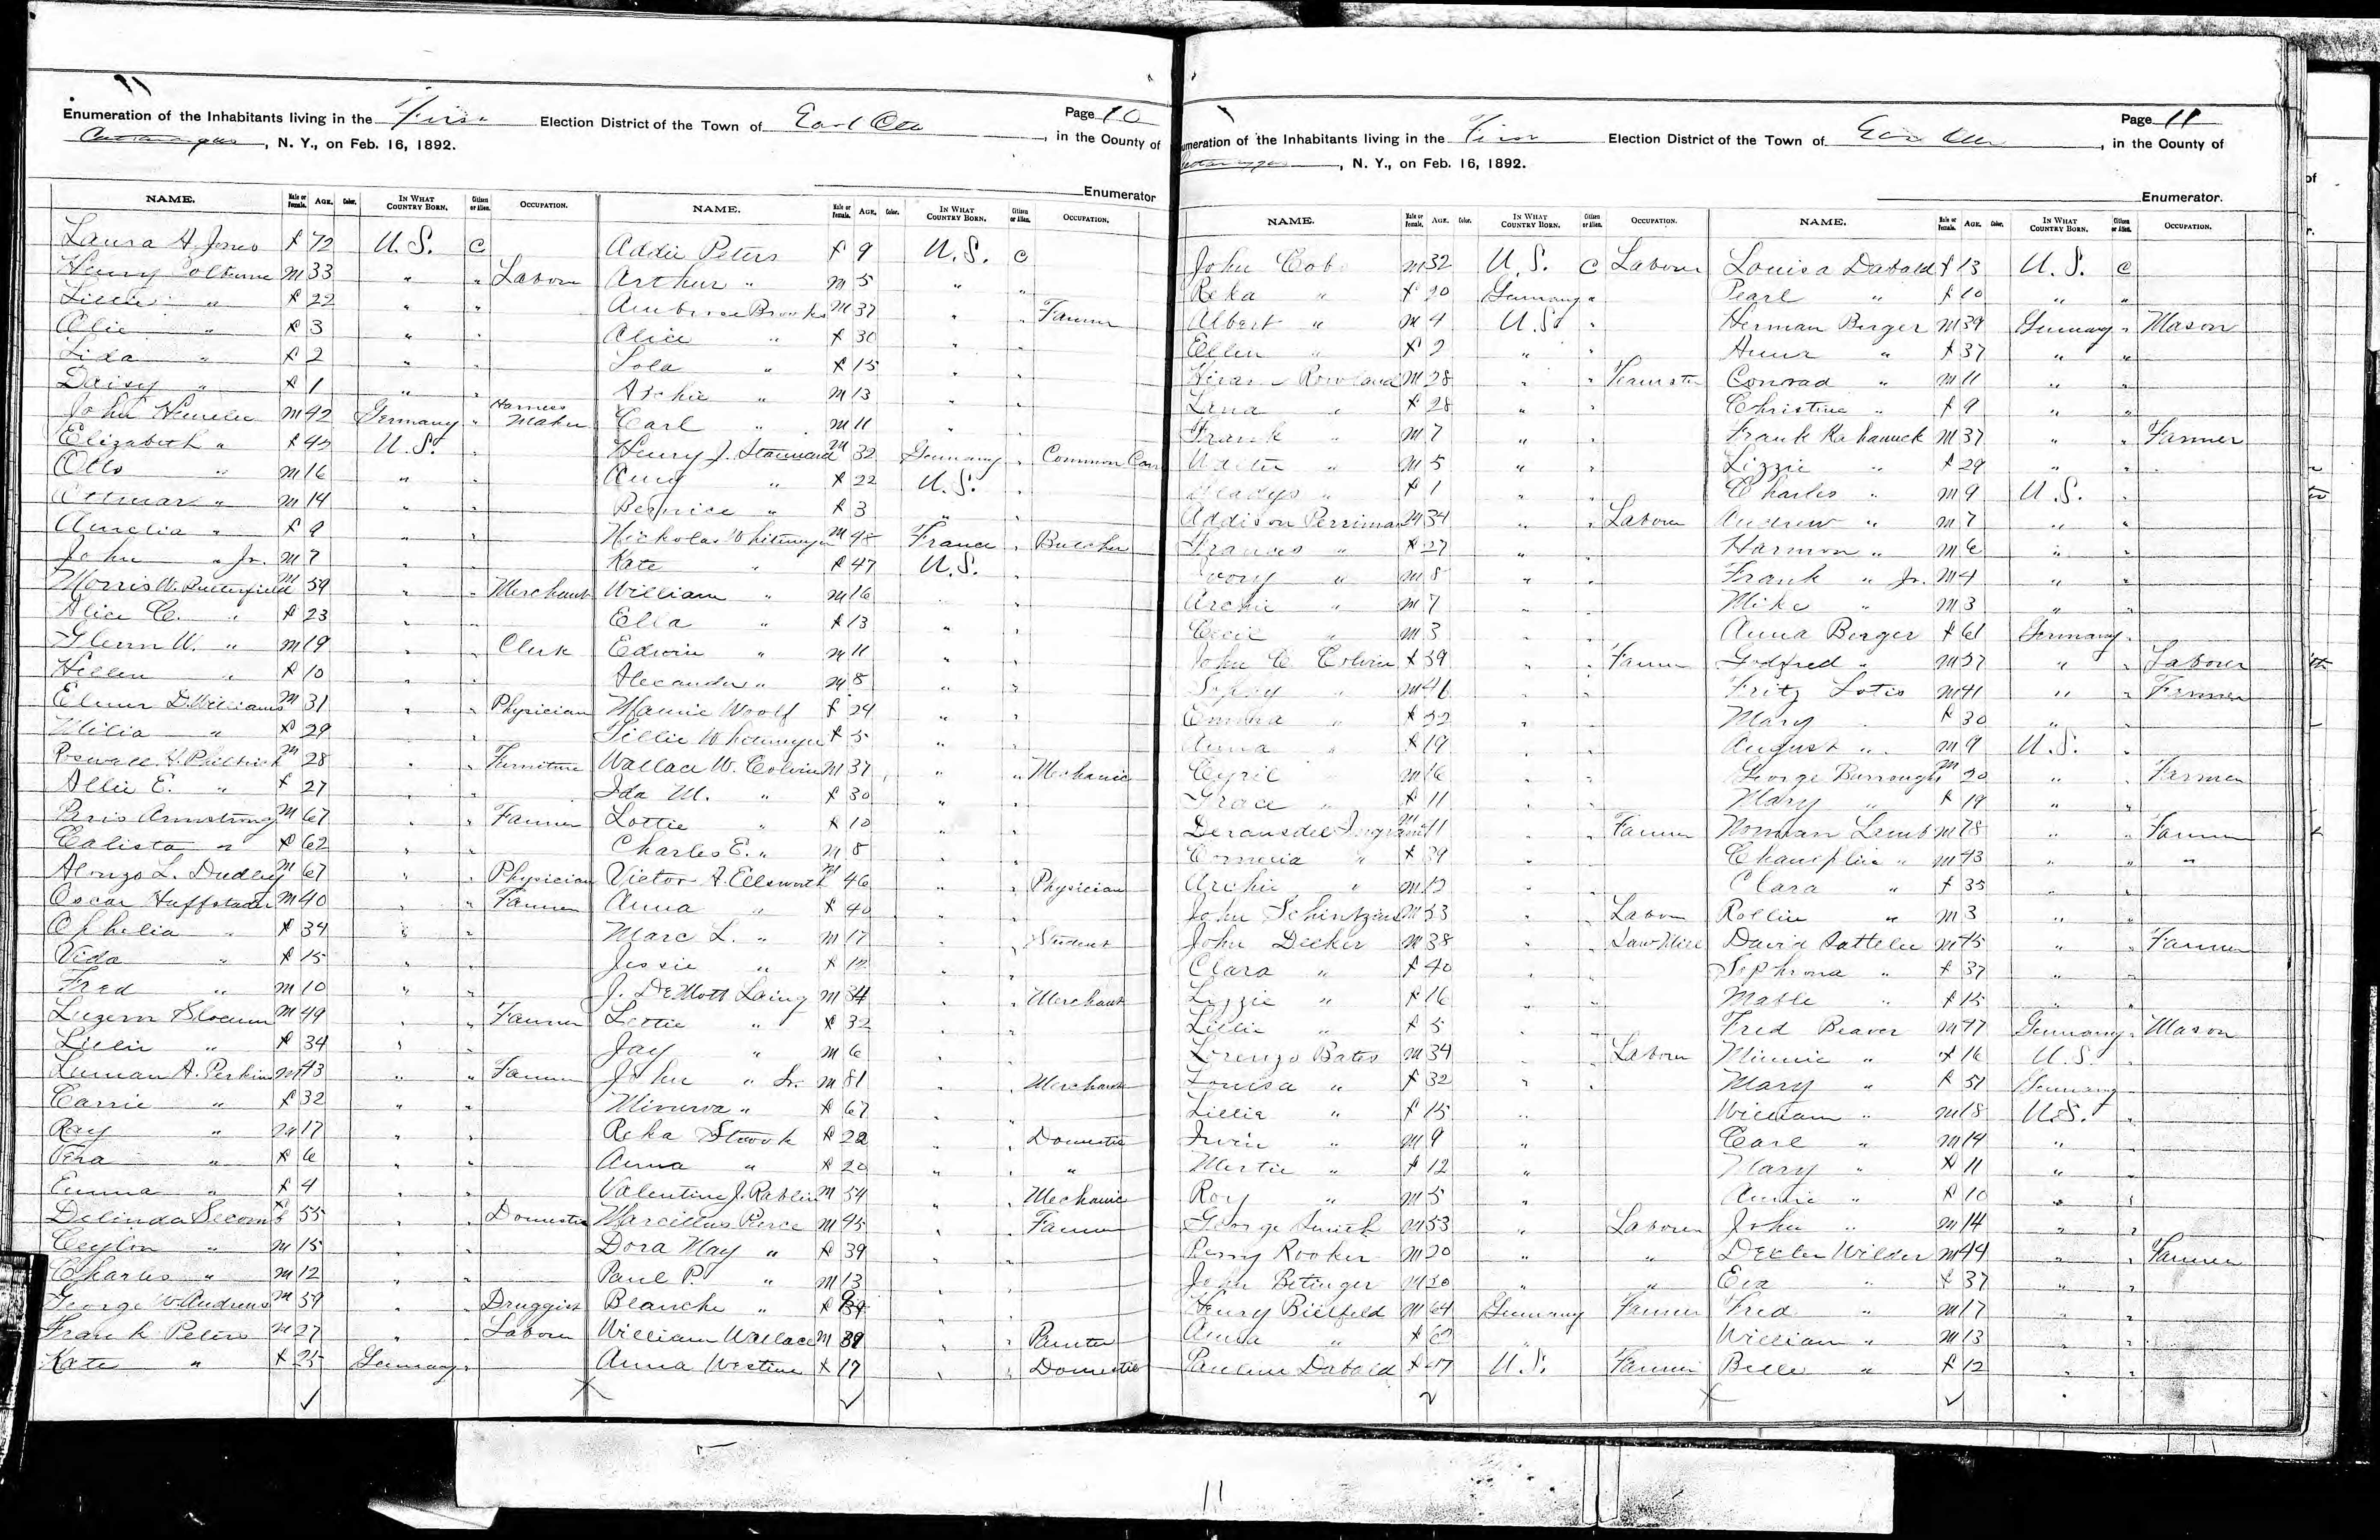 Page 10
Enumeration of the Inhabitants living in the First Election District of the Town of East Otto, in the County of
Cattaraugus, N. Y., on Feb. 16, 1892.
Enumerator
NAME. Male or Female. AGE. Color. IN WHAT COUNTRY BORN. Citizen or Alien. OCCUPATION.
Laura A. Jones f 72 U.S. C
Henry Colburne m 33 " " Labor
Lillie " f 22 " "
Olie " f 3 " "
Lida " f 2 " "
Daisy " f 1 " "
John m 42 Germany " Harness Maker
Elizabeth " f 42 U.S. "
Otto " m 16 " "
" m 14 " "
Amelia " f 9 " "
John " Jr. m 7 " "
Morris W. Butterfield m 59 " " Merchant
Alice C. " f 23 " "
Glenn W. " m 19 " " Clerk
Hellen " f 10 " "
Elmer D. Williams m 31 " " Physician
Milia " f 29 " "
Roswall H. Philbrick m 28 " " Furniture
Allie E. " f 27 " "
Paris Armstrong m 67 " " Farmer
Calista " f 62 " "
Alonzo L. Dudley m 67 " " Physician
Oscar Huffstader m 40 " " Farmer
Ophelia " f 34 " "
Vida " f 15 " "
Fred " m 10 " "
Luzern Slocum m 49 " " Farmer
Lillie " f 34 " "
Luman A. Perkins m 43 " " Farmer
Carrie " f 32 " "
Ray " m 17 " "
Vera " f 6 " "
Emma " f 4 " "
Delinda Secomb f 55 " " Domestic
Ceylon " m 15 " "
Charles " m 12 " "
George W. Andrews m 59 " " Druggist
Frank Peters m 27 " " Labor
Kate " f 25 Germany "
NAME. Male or Female. AGE. Color. IN WHAT COUNTRY BORN. Citizen or Alien. OCCUPATION.
Addie Peters f 9 U.S. C
Arthur " m 5 " "
Ambrose Brooks m 37 " " Farmer
Alice " f 30 " "
Lola " f 15 " "
Archie " m 13 " "
Carl " m 11 " "
Henry J. m 32 Germany " Common
Amy " f 22 U.S. "
Bernice " f 3 " "
Nickolas Whitmyer m France " Butcher
Kate " f 47 U.S. "
William " m 16 " "
Ella " f 13 " "
Edwin " m 11 " "
Alexander " m 8 " "
Mamie Woolf f 24 " "
Tillie Whitmyer f 5 " "
Wallace W. Colvin m 37 " " Mechanic
Ida M. " f 30 " "
Lottie " f 10 " "
Charles E. " m 8 " "
Victor A. Ellsworth m 46 " " Physician
Anna " f 40 " "
Marc L. " m 17 " " Student
Jessie " f 12 " "
J. DeMott Laing m 34 " " Merchant
Lettie " f 32 " "
Jay " m 6 " "
John " Sr. m 81 " " Merchant
Minerva " f 67 " "
Reka f 22 " " Domestic
Anna " f 20 " " "
Valentine J. Rablin m 54 " " Mechanic
Marcillus Pierce m 45 " " Farmer
Dora May " f 39 " "
Paul P. " m 13 " "
Blanche " f "
William Wallace m 39 " " Painter
Anna f 17 " " Domestic
Page 11
Enumeration of the Inhabitants living in the First Election District of the Town of East Otto, in the County of
Cattaraugus, N. Y., on Feb. 16, 1892.
Enumerator.
NAME. Male or Female. AGE. Color. IN WHAT COUNTRY BORN. Citizen or Alien. OCCUPATION.
John Cobb m 32 U.S. C Laborer
Reka " f 20 Germany "
Albert " m 4 U.S. "
Ellen " f 2 " "
Hiram Rowland m 28 " " Teamster
Lena " f 28 " "
Frank " m 7 " "
Walter " m 5 " "
Gladys " f 1 " "
Addison Perriman m 34 " " Laborer
Frances " f 27 " "
Ivory " m 8 " "
Archie " m 7 " "
Cecil " m 3 " "
John C. Colvin f 39 " " Farmer
m 46 " "
Emma " f 32 " "
Anna " f 19 " "
Cyril " m 16 " "
Grace " f 11 " "
Ingraham m " " Farmer
Cornelia " f 39 " "
Archie " m 12 " "
John Schintzius m 53 " " Labor
John Decker m 38 " " Saw Mill
Clara " f 40 " "
Lizzie " f 16 " "
Lillie " f 5 " "
Lorenzo Bates m 34 " " Labor
Louisa " f 32 " "
Lillie " f 15 "
Irvin " m 9 "
Mertie " f 12 "
Roy " m 5 "
George Smith m 53 " Laborer
Perry Rooker m 20 " "
John Betinger m 30 " "
Henry Bielfeld m 64 Germany Farmer
Anna " f "
Pauline Dabold f 47 U.S. Farmer
NAME. Male or Female. AGE. Color. IN WHAT COUNTRY BORN. Citizen or Alien. OCCUPATION.
Louisa Dabold f 13 U.S. C
Pearl " f 10 " "
Herman Berger m 39 Germany " Mason
Anna " f 37 " "
Conrad " m 11 " "
Christine " f 9 " "
Frank Rahauck m 37 " " Farmer
Lizzie " f 29 " "
Charles " m 9 U.S. "
Andrew " m 7 " "
Harmon " m 6 " "
Frank " Jr. m 4 " "
Mike " m 3 " "
Anna Berger f 61 Germany "
Godfred " m 57 " " Laborer
Fritz Lotis m 41 " " Farmer
Mary " f 30 "
August " m 9 U.S. "
George Burroughs m 20 " " Farmer
Mary " f 19 " "
Norman Lamb m 78 " " Farmer
Champlin " m 43 " " "
Clara " f 35 " "
Rollin " m 3 " "
David Sattelee m 45 " " Farmer
Sephrona " f 37 " "
Mable " f 15 " "
Fred Beaver m 47 Germany " Mason
Minnie " f 16 U.S. "
Mary " f 51 Germany
William " m 18 U.S. "
Carl " m 14 "
Mary " f 11 " "
Annie " f 10 " "
John " m 14 " "
Dexter Wilder m 44 " " Farmer
Eva " f 37 " "
Fred " m 17 " "
William " m 13 " "
Belle " f 12 " "
11